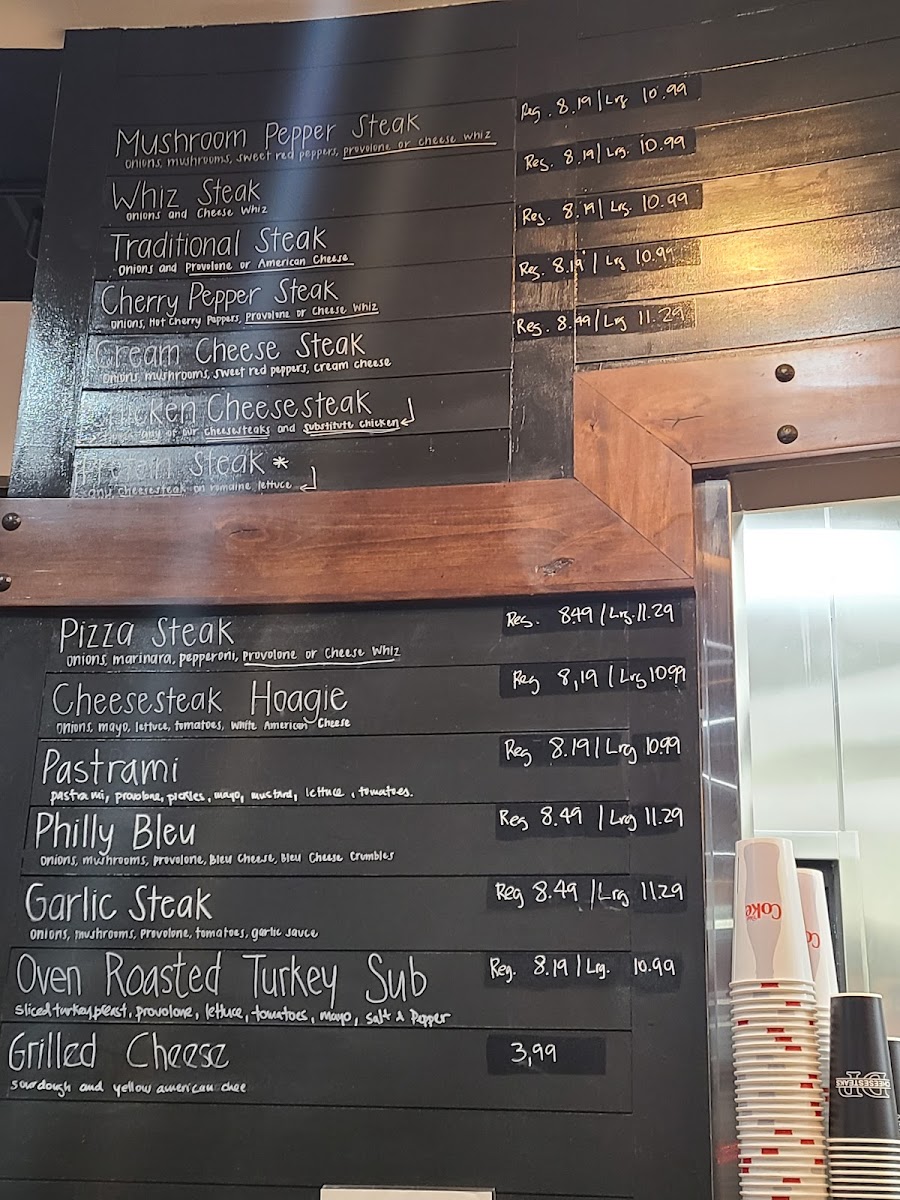 Mushroom Pepper Steak Reg. 8.19 / Lrg 10.99
onions, mushrooms, sweet red peppers, provolone or cheese whiz
Whiz Steak Reg. 8.19 / Lrg. 10.99
onions and Cheese Whiz
Traditional Steak Reg. 8.19 / Lrg. 10.99
onions and Provolone or American Cheese
Cherry Pepper Steak Reg. 8.19 / Lrg 10.99
onions, Hot Cherry Peppers, Provolone or Cheese Whiz
Cream Cheese Steak Reg. 8.49 / Lrg 11.29
onions, mushrooms, sweet red peppers, cream cheese
Chicken Cheesesteak
any of our cheesesteaks and substitute chicken
Steak *
any cheesesteak on romaine lettuce
Pizza Steak Reg. 8.49 / Lrg. 11.29
onions, marinara, pepperoni, provolone or Cheese Whiz
Cheesesteak Hoagie Reg 8,19 / Lrg 10.99
onions, mayo, lettuce, tomatoes, White American Cheese
Pastrami Reg 8.19 / Lrg 10.99
pastrami, provolone, pickles, mayo, mustard, lettuce, tomatoes.
Philly Bleu Reg 8.49 / Lrg 11.29
onions, mushrooms, provolone, Bleu Cheese, Bleu Cheese Crumbles
Garlic Steak Reg 8.49 / Lrg 11.29
onions, mushrooms, provolone, tomatoes, garlic sauce
Oven Roasted Turkey Sub Reg. 8.19 / Lrg. 10.99
sliced turkey breast, provolone, lettuce, tomatoes, mayo, salt & Pepper
Grilled Cheese 3,99
sourdough and yellow american chee
Coke
CHEESESTEAKS